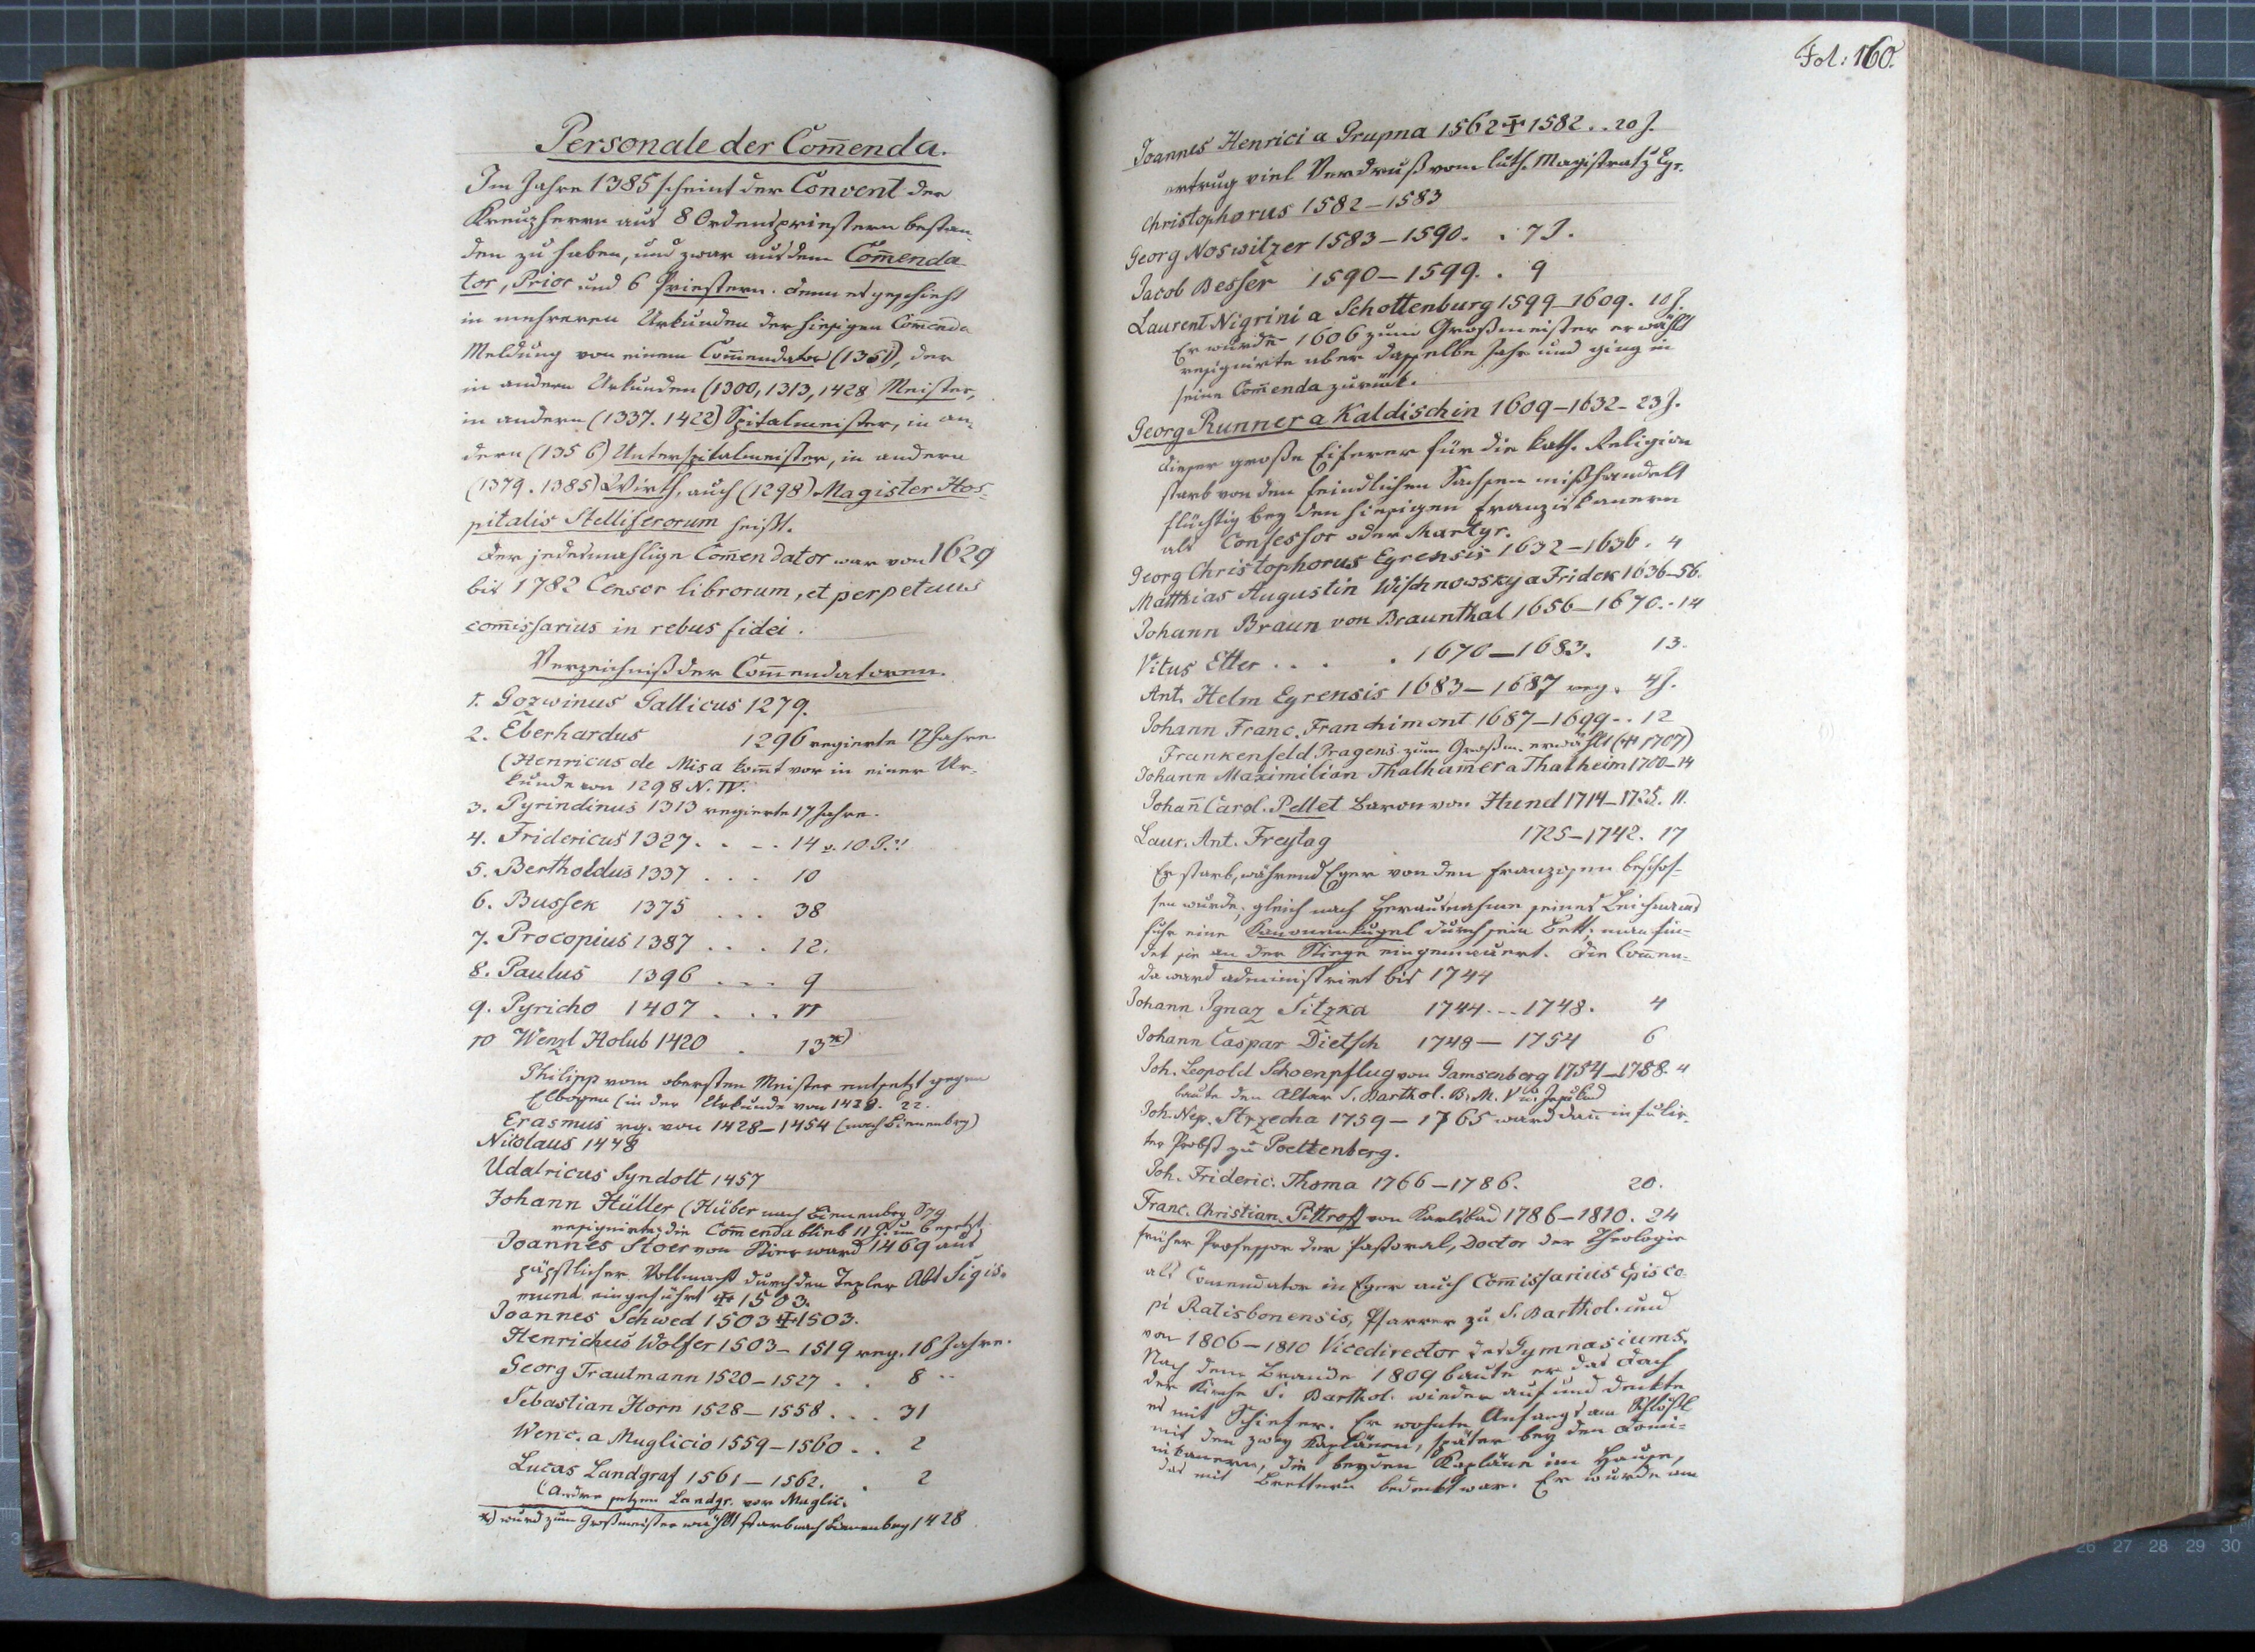 Personale der Com̄enda.
Im Jahre 1385 scheint der Convent der
Kreuzherrn aus 8 Ordenspriestern bestan-
den zu haben, und zwar aus dem Com̄enda
tor, Prior und 6 Priestern. denn es geschieht
in mehreren Urkunden der hiesigen Com̄enda
Meldung von einem Com̄endator (1351), der
in andern Urkunden (1300, 1313, 1428) Meister,
in andern (1337. 1422) Spitalmeister, in an-
dern (1356) Unterspitalmeister, in andern
(1379. 1385) Wirth, auch (1298) Magister Hos-
pitalis Stelliferorum heißt.
Der jedesmahlige Com̄endator war von 1629
bis 1782 Censor librorum, et perpetuus
com̄issarius in rebus fidei.
Verzeichniß der Com̄endatoren.
1. Gozwinus Gallicus 1279.
2. Eberhardus 1296 regierte 17 Jahre
(Henricus de Misa kom̄t vor in einer Ur-
kunde von 1298 N. IV.
3. Pyrindinus 1313 regierte 17 Jahre.
4. Fridericus 1327. . -. 14 v. 10 J.?!
5. Bertholdus 1337 . . . 10
6. Bussek 1375 . . . 38
7. Procopius 1387 . . . 12.
8. Paulus 1396 . . . 9
9. Pyricho 1407 . . . 11
10 Wenzl Holub 1420 . 13 *)
Philipp vom obersten Meister entsetzt gegen
Elbogen (in der Urkunde von 1428. 22.
Erasmus rg. von 1428–1454 (nach Bienenberg)
Nicolaus 1448
Udalricus Syndolt 1457
Johann Hüller (Hüber nach Bienenberg
resignirte, die Com̄enda blieb 11 J. unbesetzt
Joannes Stoer von Stier ward 1469 aus
päpstlicher Vollmacht durch den Tepler Abt Sigis-
mund eingeführt ✝ 1503.
Joannes Schwed 1503 ✝ 1503.
Henrichus Wolfer 1503–1519 reg. 16 Jahre.
Georg Trautmann 1520–1527 . . 8 ..
Sebastian Horn 1528–1558 . . . 31
Wenc. a Muglicio 1559–1560 . . 2
Lucas Landgraf 1561–1562. . 2
(Andre setzen Landgr. vor Muglic.
*) wurd zum Großmeister erwählt starb nach Bienenberg 1428
Fol: 160.
Joannes Henrici a Grupna 1562 ✝ 1582 . . 20 J.
ertrug viel Verdruß vom luth. Magistrat z Egr.
Christophorus 1582–1583
Georg Noswitzer 1583–1590. . 7 J.
Jacob Besser 1590–1599. . 9
Laurent Nigrini a Schottenburg 1599–1609. 10 J.
Er wurde 1606 zum Großmeister erwählt
resignirte aber dasselbe Jahr und ging in
seine Com̄enda zurück.
Georg Runner a Kaldischin 1609–1632–23 J.
dieser große Eiferer für die kath. Religion
starb von den feindlichen Sachsen mißhandelt
flüchtig bey den hiesigen Franziskanern
als Confessor oder Martyr.
Georg Christophorus Egrensis 1632–1636. 4
Matthias Augustin Wischnowsky a Fridek 1636–56.
Johann Braun von Braunthal 1656–1670.. 14
Vitus Etter . . . . 1670–1683. 13.
Ant. Helm Egrensis 1683–1687 reg. 4 J.
Johann Franc. Franchimont 1687–1699 - . 12
Frankenfeld. Pragens. zum Großm. erwählt (✝ 1707)
Johann Maximilian Thalham̄er a Thalheim 1700–14
Johan̄ Carol. Pellet Baron von Hund 1714–1725. 11.
Laur. Ant. Freytag 1725–1742. 17
Er starb, während Eger von den Franzosen beschos-
sen wurde, gleich nach Herausnahme seines Leichnams
fuhr eine Kanonenkugel durch sein Bett, man fin-
det sie an der Stiege eingemauert. Die Com̄en-
da ward administrirt bis 1744
Johann Ignaz Sitzka 1744 - - - 1748. 4
Johann Caspar Dietsch 1748–1754 6
Joh. Leopold Schoenpflug von Gamsenberg 1754–1758. 4
baute den Altar S. Barthol. B. M. V u. Jesukind
Joh. Nep. Strzecha 1759–1765 ward dan̄ infulir-
ter Probst zu Poeltenberg.
Joh. Frideric. Thoma 1766–1786. 20.
Franc. Christian. Pittroff von Karlsbad 1786–1810. 24
früher Professor der Pastoral, Doctor der Theologie
als Com̄endator in Eger auch Com̄issarius Episco-
pi Ratisbonensis, Pfarrer zu S. Barthol. und
von 1806–1810 Vicedirector des Gymnasiums.
Nach dem Brande 1809 baute er das Dach
der Kirche S. Barthol. wieder auf und deckte
es mit Schiefer. Er wohnte Anfangs am Schlößl
mit den zwey Kaplänen, später bey den Domi-
nikanern, die beyden Kapläne im Hause,
das mit Brettern bedeckt war. Er wurde am